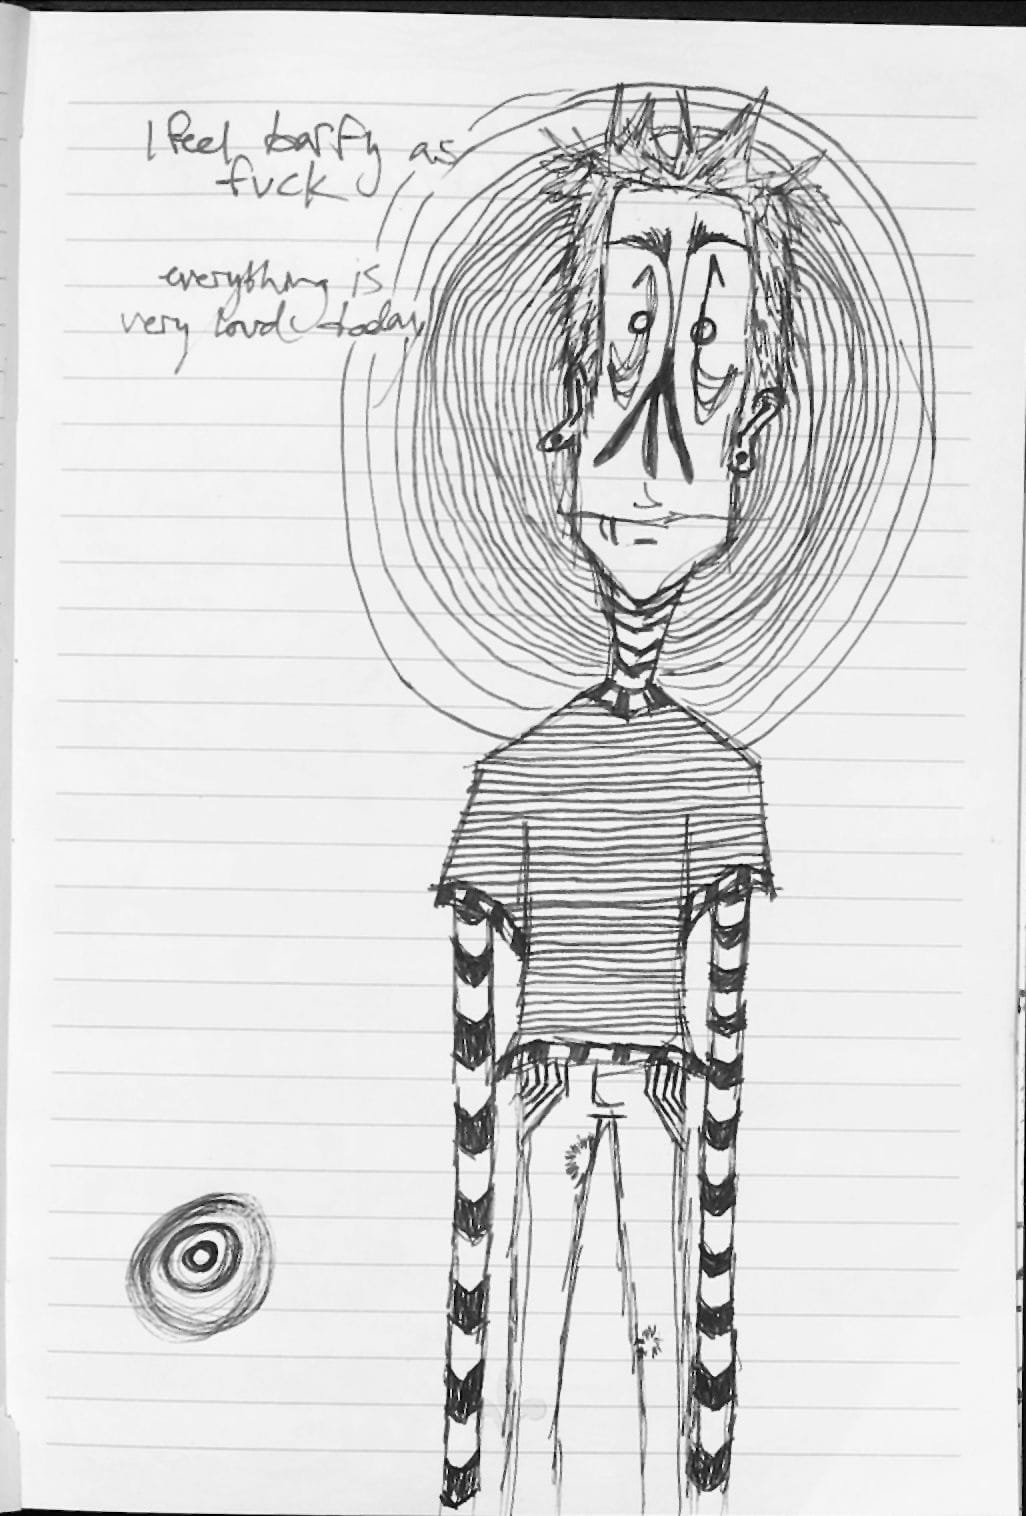 I feel barfy as
fuck
everything is
very loud today